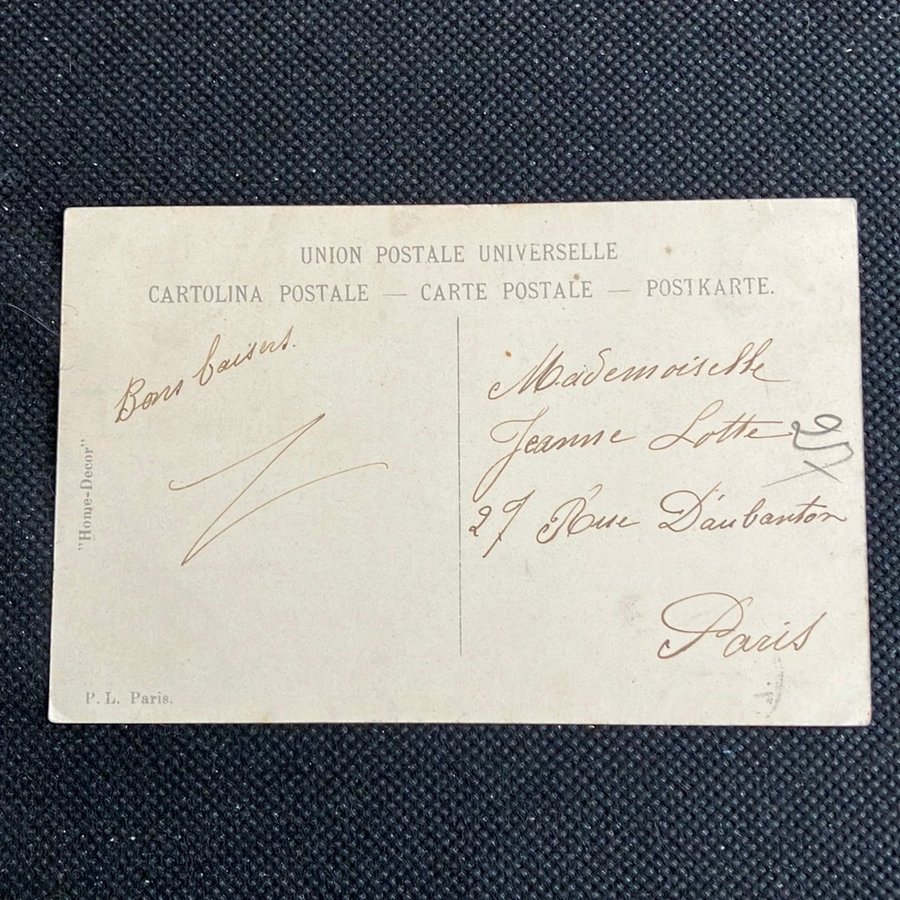 UNION POSTALE UNIVERSELLE
CARTOLINA POSTALE — CARTE POSTALE — POSTKARTE.
Bons baisers.
Mademoiselle
Jeanne Lotte
27 Rue D'aubanton
Paris
"Home-Decor"
P. L. Paris.